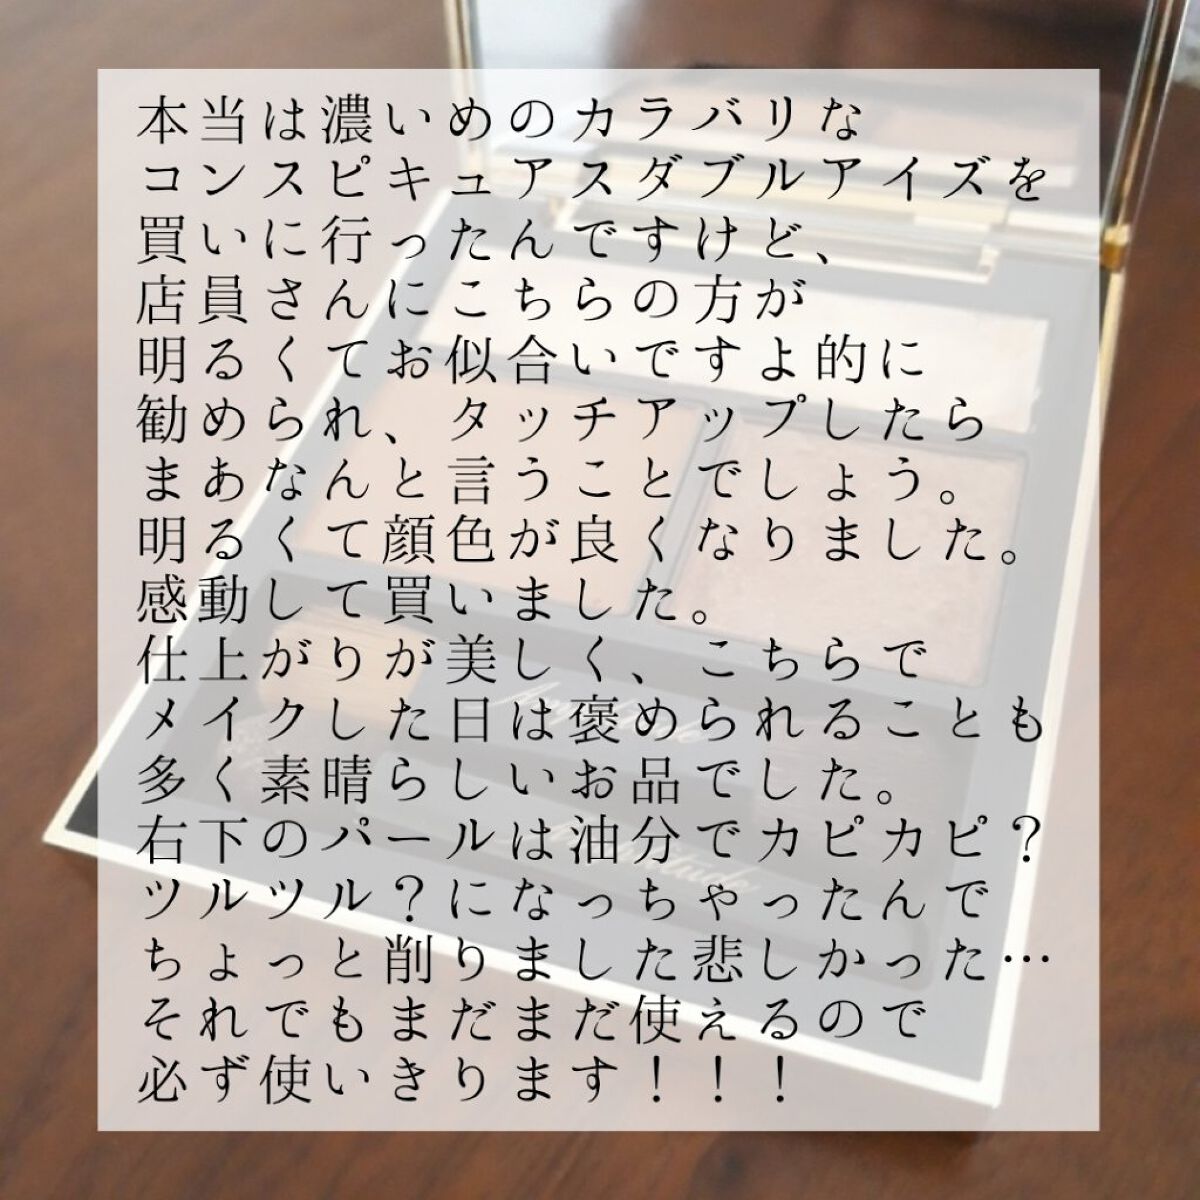 本当は濃いめのカラバリな
コンスピキュアスダブルアイズを
買いに行ったんですけど、
店員さんにこちらの方が
明るくてお似合いですよ的に
勧められ、タッチアップしたら
まあなんと言うことでしょう。
明るくて顔色が良くなりました。
感動して買いました。
仕上がりが美しく、こちらで
メイクした日は褒められることも
多く素晴らしいお品でした。
右下のパールは油分でカピカピ？
ツルツル？になっちゃったんで
ちょっと削りました悲しかった…
それでもまだまだ使えるので
必ず使いきります！！！